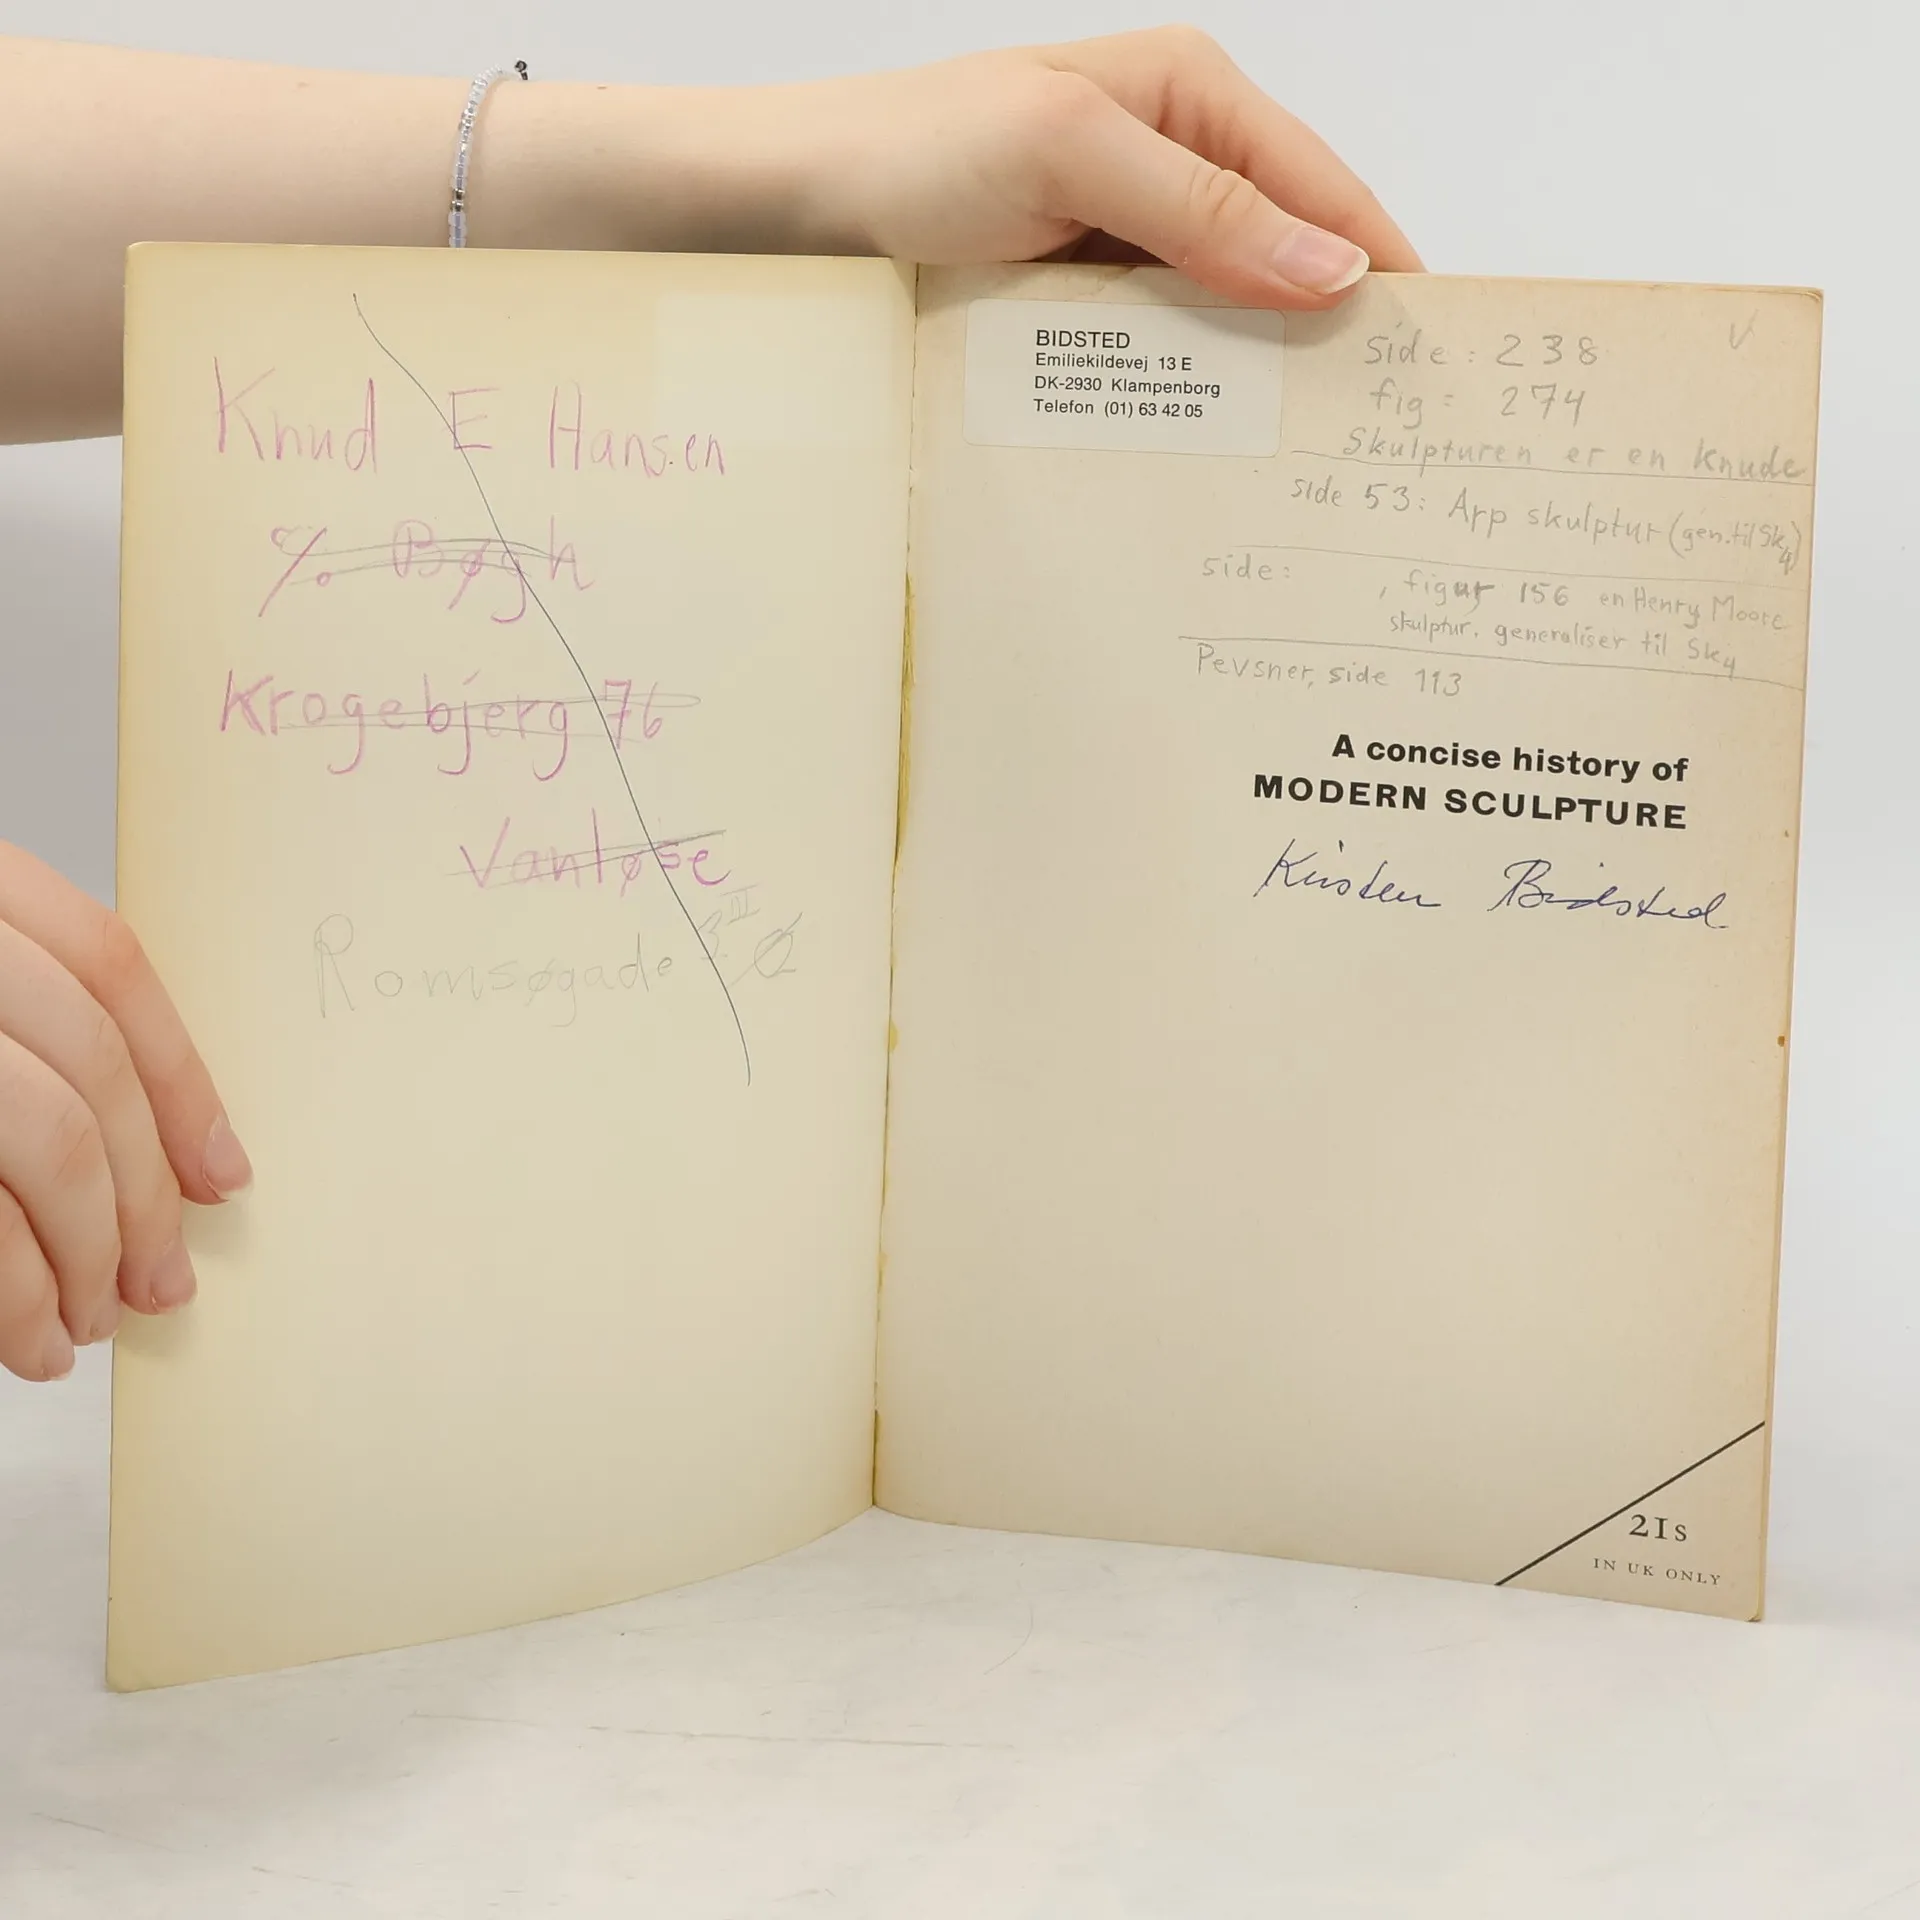 Knud E Hansen
℅ Bøgh
Krogebjerg 76
Vanløse
Romsøgade 3 III Ø
BIDSTED
Emiliekildevej 13 E
DK-2930 Klampenborg
Telefon (01) 63 42 05
V
side: 238
fig = 274
Skulpturen er en Knude
side 53: Arp skulptur (gen. til Sk4)
side: , figur 156 en Henry Moore
skulptur. generaliser til Sk4
Pevsner, side 113
A concise history of
MODERN SCULPTURE
Kirsten Bidsted
21s
IN UK ONLY